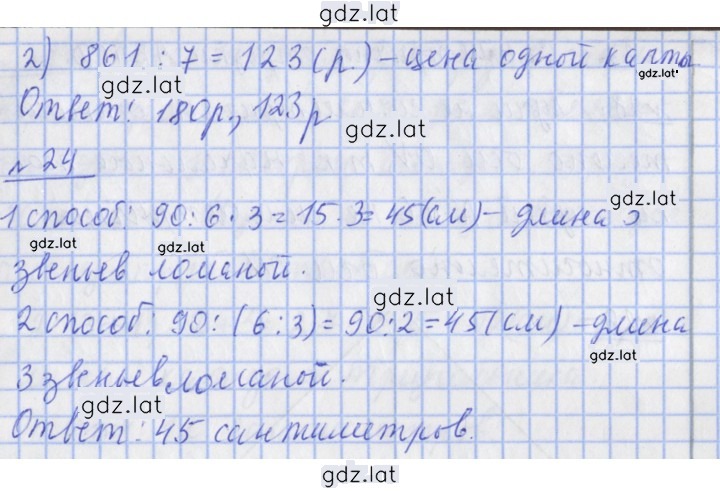 gdz.lat
2) 861 : 7 = 123 (р.) – цена одной карты.
gdz.lat gdz.lat
Ответ: 180р., 123р
gdz.lat
№ 24
gdz.lat
1 способ: 90 : 6 · 3 = 15 · 3 = 45 (см) – длина 3
gdz.lat gdz.lat
звеньев ломаной.
gdz.lat
2 способ: 90 : (6 : 3) = 90 : 2 = 45 (см) – длина
gdz.lat
3 звеньев ломаной.
gdz.lat
Ответ: 45 сантиметров.
gdz.lat